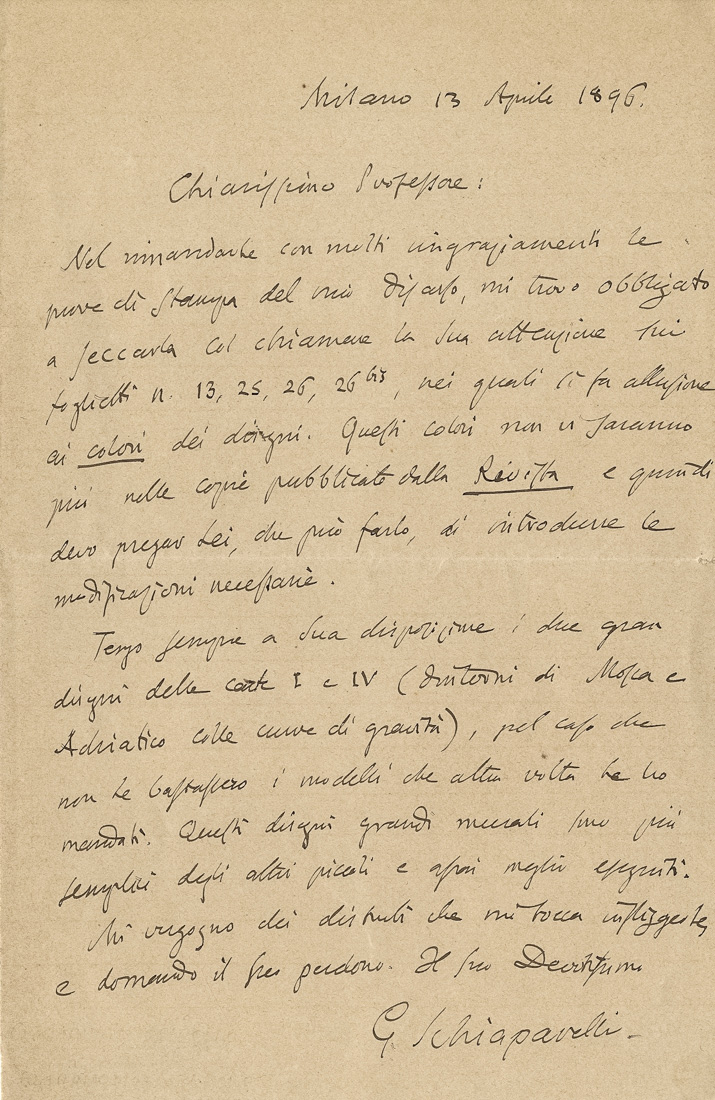 Milano 13 Aprile 1896.
Chiarissimo Professore:
Nel rimandarle con molti ringraziamenti le
prove di stampa del mio discorso, mi trovo obbligato
a seccarla col chiamare la Sua attenzione sui
foglietti n. 13, 25, 26, 26 bis, nei quali si fa allusione
ai colori dei disegni. Questi colori non vi saranno
più nelle copie pubblicate dalla Rivista e quindi
devo pregar Lei, che può farlo, di introdurre le
modificazioni necessarie.
Tengo sempre a Sua disposizione i due gran
disegni delle carte I e IV (dintorni di Mosca e
Adriatico colle curve di gravità), pel caso che
non Le bastassero i modelli che altra volta Le ho
mandati. Questi disegni grandi murali sono più
semplici degli altri piccoli e assai meglio eseguiti.
Mi vergogno dei disturbi che mi tocca infliggerle,
e domando il Suo perdono. Il Suo Devotissimo
G. Schiaparelli